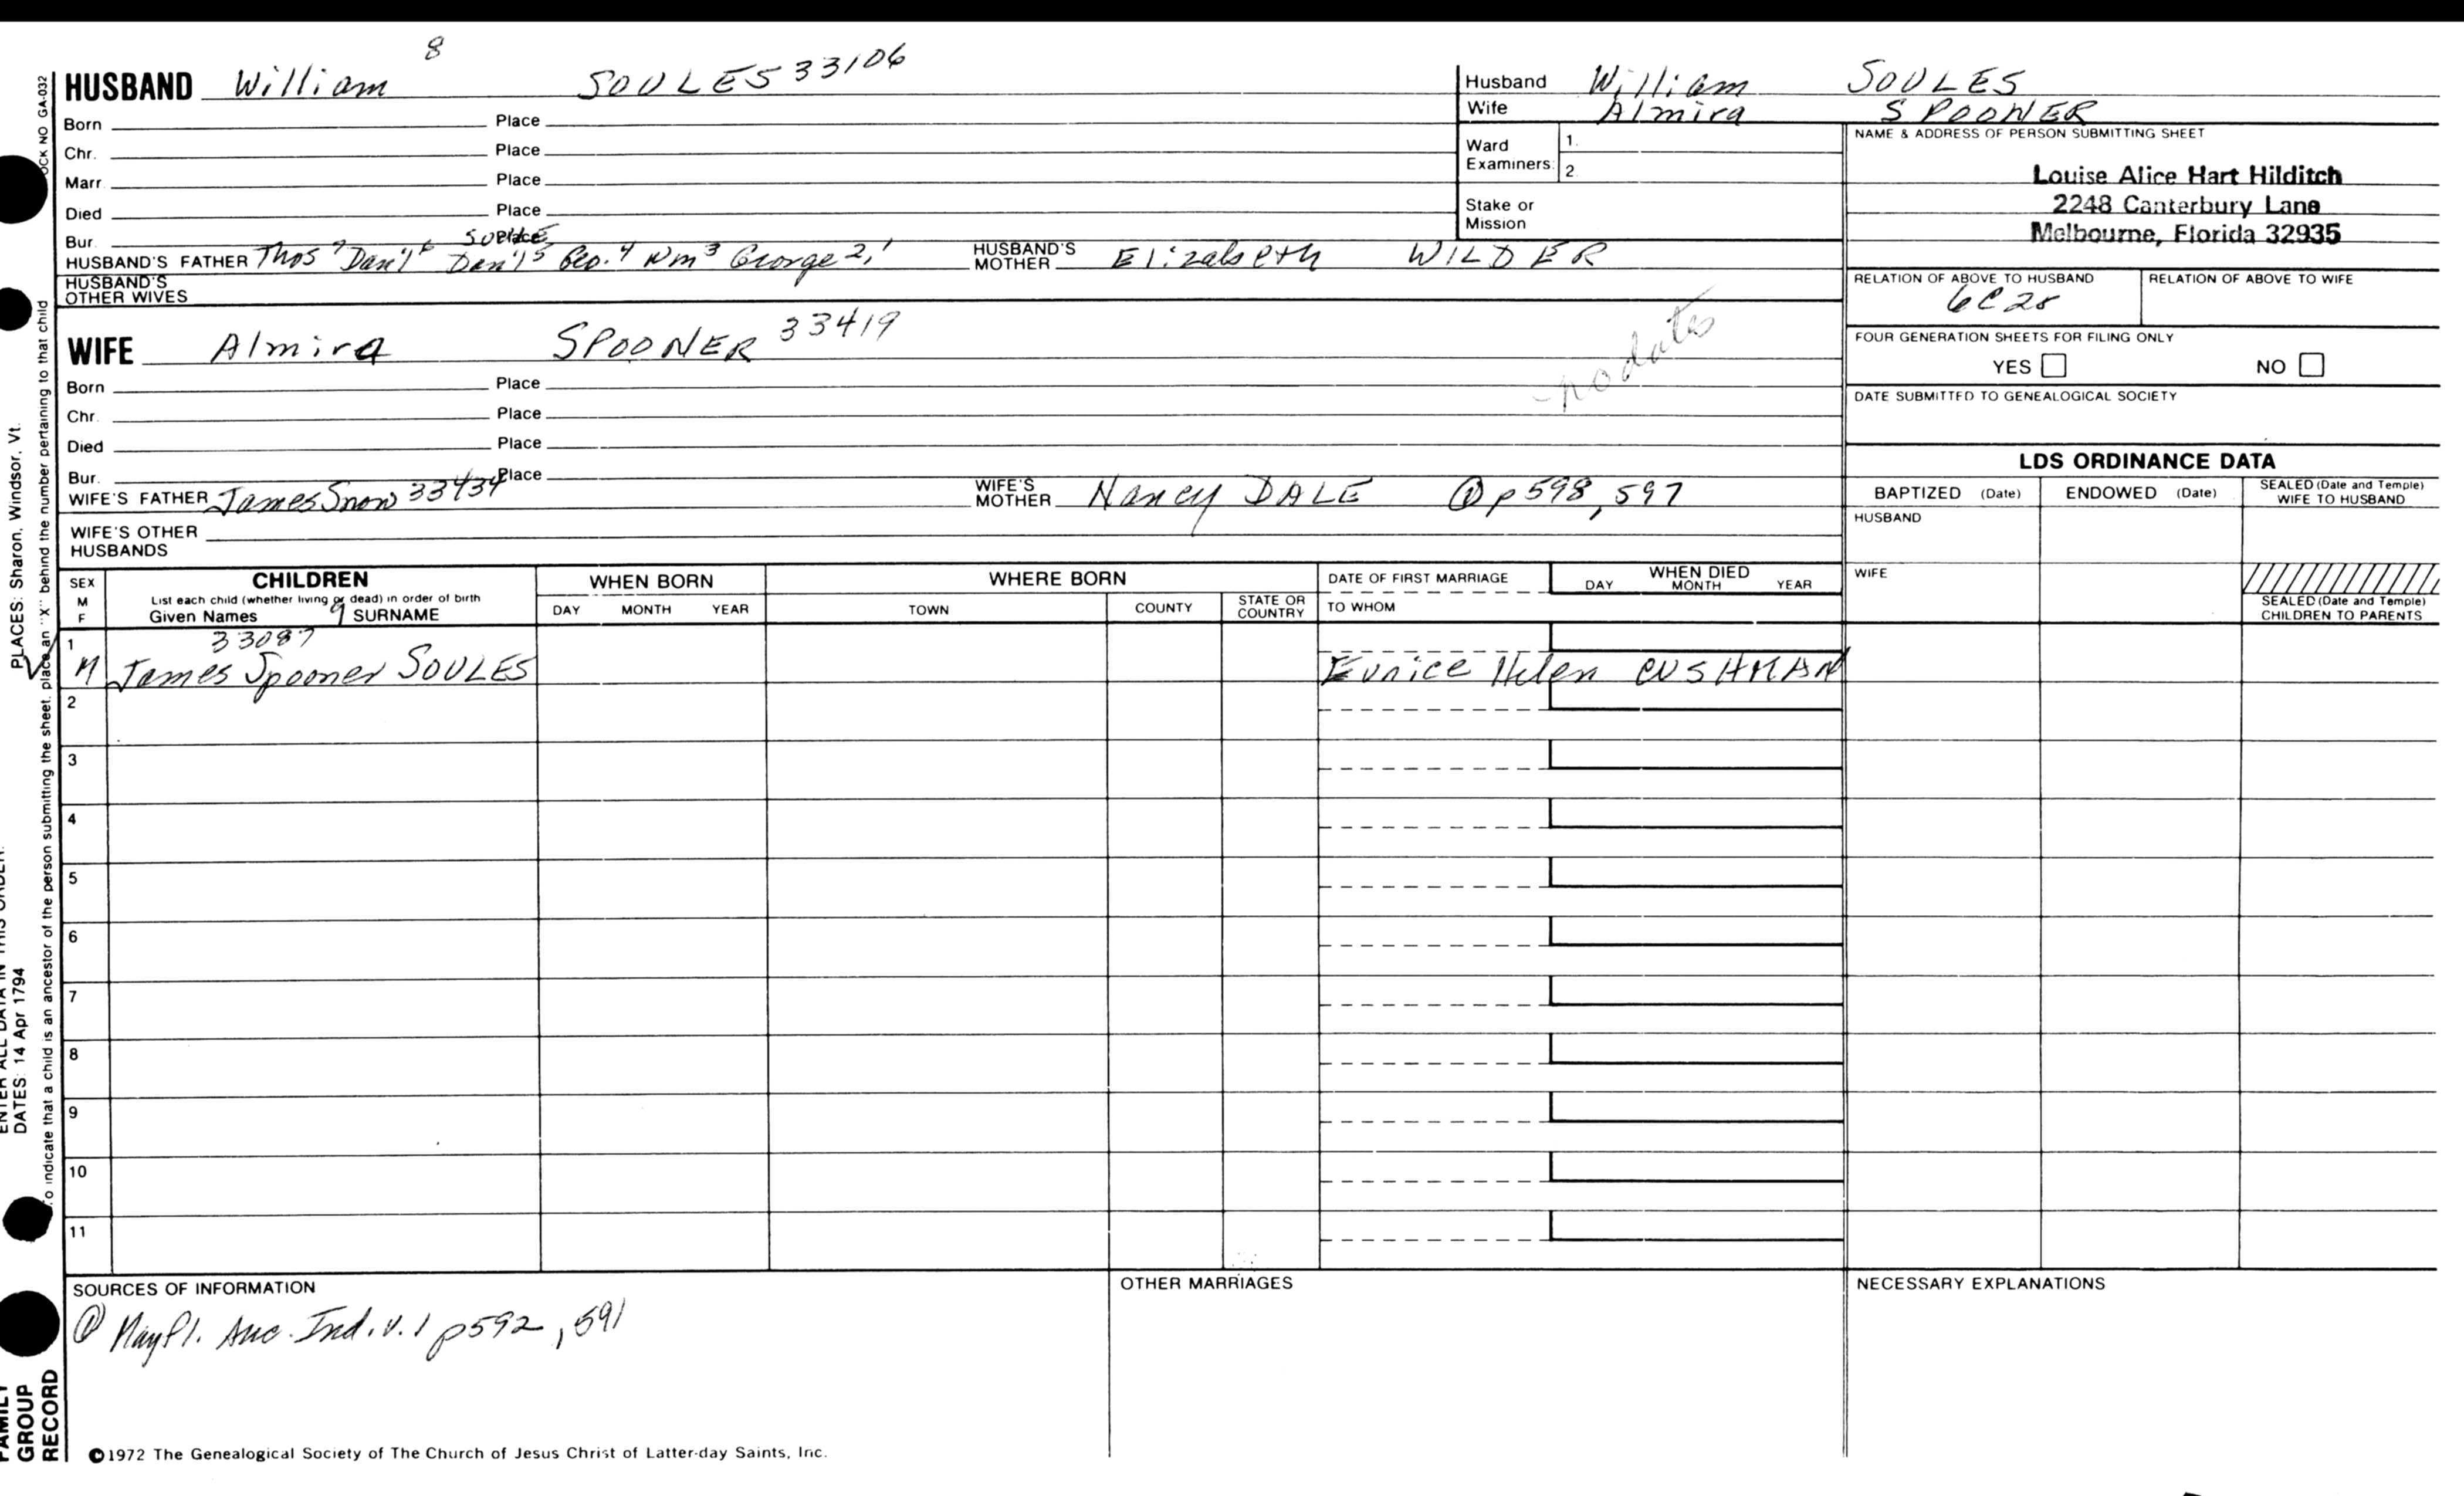 8
HUSBAND William SOULES 33106
Born Place
Chr. Place
Marr. Place
Died Place
Bur. Place
SOULE
HUSBAND'S FATHER Thos 7 Dan'l 6 Dan'l 5 Geo. 4 Wm 3 George 2, 1 HUSBAND'S MOTHER Elizabeth WILDER
HUSBAND'S OTHER WIVES
WIFE Almira SPOONER 33419
no dates
Born Place
Chr. Place
Died Place
Bur. Place
WIFE'S FATHER James Snow 33434 WIFE'S MOTHER Nancy DALE @ p598, 597
WIFE'S OTHER HUSBANDS
Husband William SOULES
Wife Almira SPOONER
Ward Examiners: 1. 2.
Stake or Mission
NAME & ADDRESS OF PERSON SUBMITTING SHEET
Louise Alice Hart Hilditch
2248 Canterbury Lane
Melbourne, Florida 32935
RELATION OF ABOVE TO HUSBAND RELATION OF ABOVE TO WIFE
6C2r
FOUR GENERATION SHEETS FOR FILING ONLY
YES NO
DATE SUBMITTED TO GENEALOGICAL SOCIETY
LDS ORDINANCE DATA
BAPTIZED (Date) ENDOWED (Date) SEALED (Date and Temple) WIFE TO HUSBAND
HUSBAND
WIFE
SEALED (Date and Temple) CHILDREN TO PARENTS
SEX M F CHILDREN WHEN BORN WHERE BORN DATE OF FIRST MARRIAGE WHEN DIED
List each child (whether living or dead) in order of birth
Given Names 9 SURNAME DAY MONTH YEAR TOWN COUNTY STATE OR COUNTRY TO WHOM DAY MONTH YEAR
1 33087
M James Spooner SOULES Eunice Helen CUSHMAN
2
3
4
5
6
7
8
9
10
11
SOURCES OF INFORMATION
@ Mayfl. Anc. Ind. v. 1 p592, 591
OTHER MARRIAGES
NECESSARY EXPLANATIONS
©1972 The Genealogical Society of The Church of Jesus Christ of Latter-day Saints, Inc.
OCK NO GA-032
PLACES: Sharon, Windsor, Vt.
To indicate that a child is an ancestor of the person submitting the sheet, place an "X" behind the number pertaining to that child
ENTER ALL DATA IN THIS ORDER:
DATES: 14 Apr 1794
FAMILY GROUP RECORD